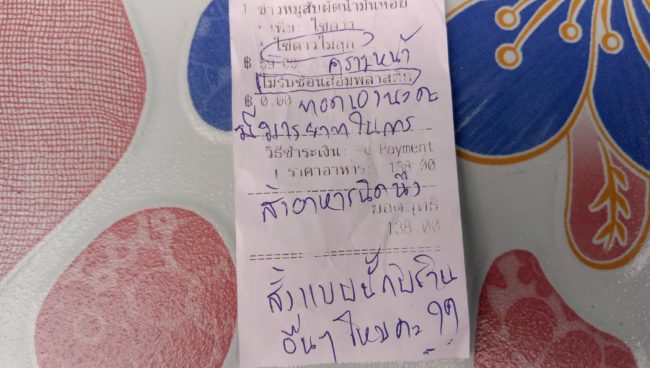 1 ข้าวหมูสับผัดน้ำมันหอย
เพิ่ม: ไข่ดาว
ไข่ดาวไม่สุก
฿ 69.00 คราวหน้า
ไม่รับช้อนส้อมพลาสติก
฿ 0.00 ทอดเอานะคะ
มีมารยาทในการ
วิธีชำระเงิน: e-Payment
ราคาอาหาร: 138.00
สั่งอาหารนิดนึง
ยอดสุทธิ
138.00
สั่งแบบนี้กับร้าน
อื่นๆ ไหมคะ